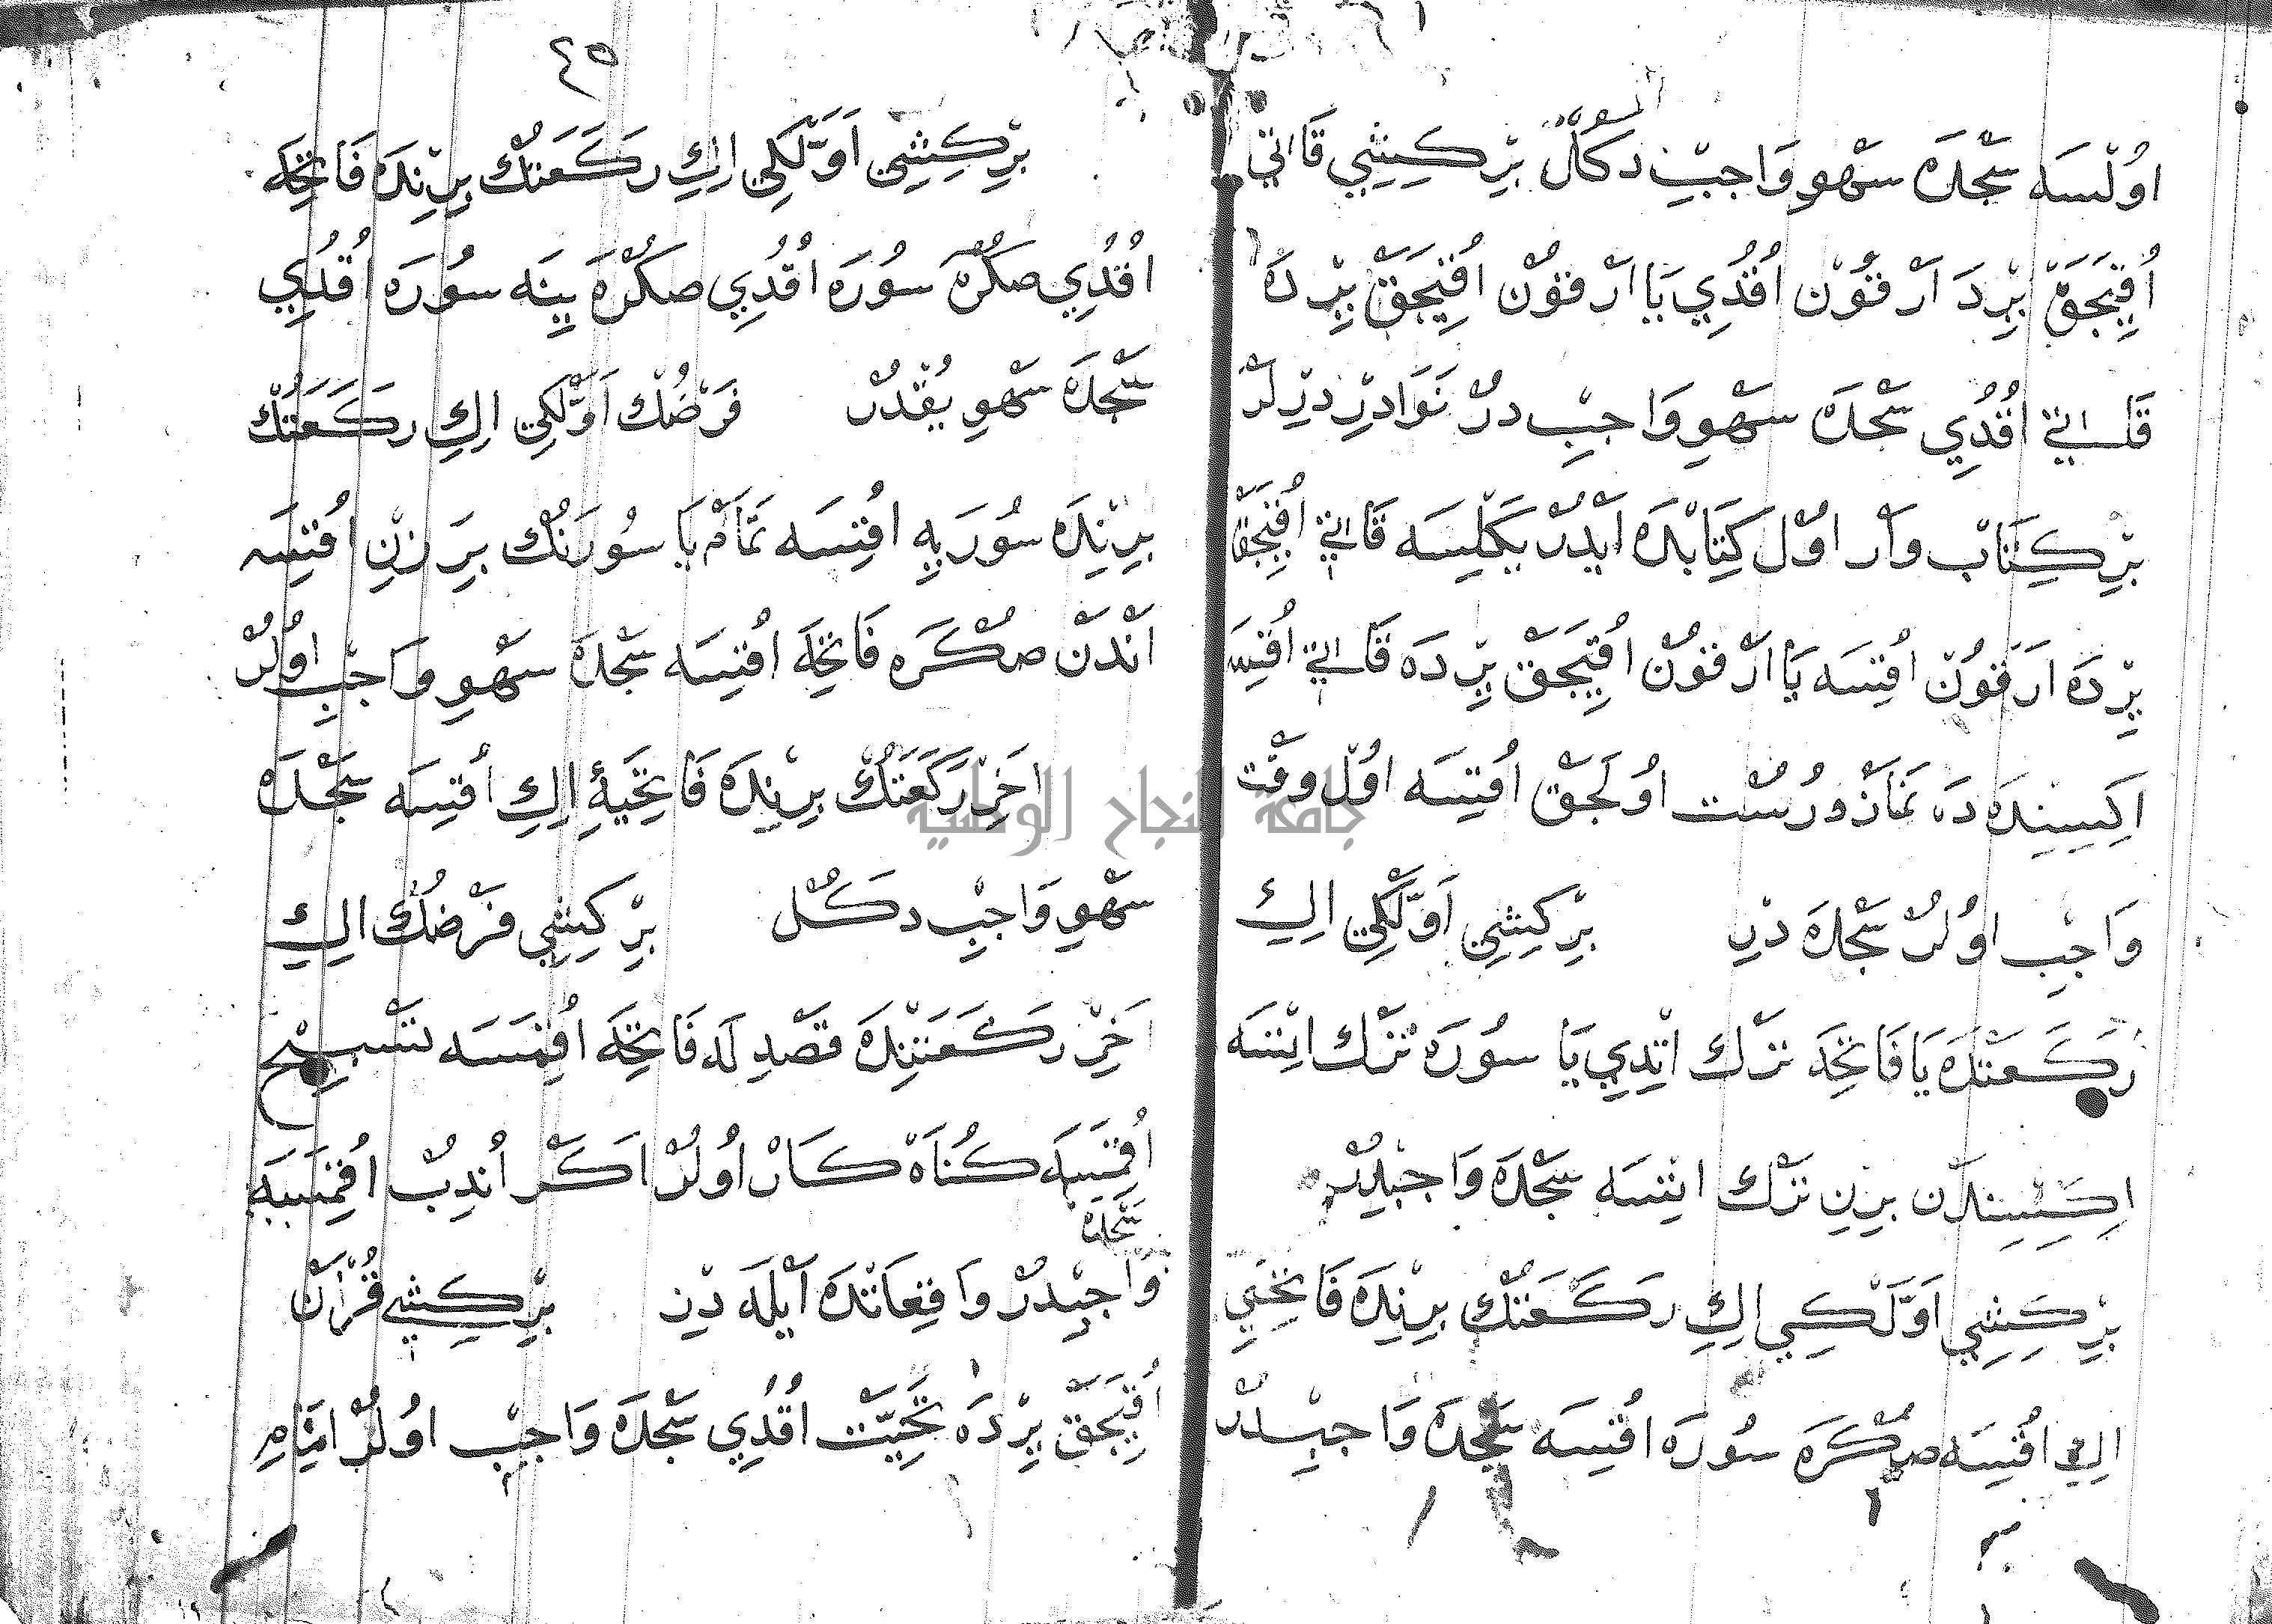 اوُلْسَه سَجْدَه سَهْو وَاجِبْ دكُلْ بِرْ كِيشِي قَانِي
اُقِيَجَقْ يِرْدَ اَرْقُوْن اُقُدِي يَا اَرْقُوْن اُقِيَجَقْ يِرْدَه
قَانِي اُقُدِي سَجْدَه سَهْوِ وَاجِبْ درْ نَوَادِرْ درْلَرْ
بِرْ كِتَابْ وَار اوُلْ كِتَابْدَه اَيْدُرْ يَكْلِسَه قَانِي اُقِيَجَقْ
يِرْدَه اَرْقُوْن اُقِسَه يَا اَرْقُوْن اُقِيَجَقْ يِرْدَه قَانِي اُقِسَه
اِكِيسِنِدَه دَه نَمَازْ دُرُسْت اوُلَجَقْ اُقِسَه اوُلْ وَقْت
وَاجِبْ اوُلُرْ سَجْدَه دَنِ بِرْ كِيشِي اَوَّلْكِي اِكِ
رَكَعَتْدَه يَا فَاتِحَه تَرْك اِتْدِي يَا سُورَه تَرْك اِتْسَه
اِكِيسِنْدَن بِرِنِ تَرْك اِتْسَه سَجْدَه وَاجِبْدِرْ
بِرْ كِيشِي اَوَّلْكِي اِكِ رَكَعَتُكْ بِرِنِدَه فَاتِحَيِ
اِكِ اُقِسَه صُكْرَه سُورَه اُقِسَه سَجْدَه وَاجِبْدُرْ
٤٥
بِرْ كِيشِي اَوَّلْكِي اِكِ رَكَعَتُكْ بِرِنِدَه فَاتِحَه
اُقُدِي صكُرَه سُورَه اُقُدِي صكُرَه يِنَه سُورَه اُقُدِي
سَجْدَه سَهْوِ يُقْدُرْ فَرْضُكْ اَوَّلْكِي اِكِ رَكَعَتُكْ
بِرِنِدَه سُورَيِه اُقِسَه تَمَامْ يَا سُورَنُكْ بَرَزِنِ اُقِسَه
اَنْدَنْ صُكْرَه فَاتِحَه اُقِسَه سَجْدَه سَهْوِ وَاجِبْ اوُلُرْ
اَخِرْ رَكَعَتُكْ بِرِنِدَه فَاتِحَيِهٔ اِكِ اُقِسَه سَجْدَه
سَهْوِ وَاجِبْ دكُلْ بِرْ كِيشِي فَرْضُكْ اِكِ
اَخِرْ رَكَعَتِنْدَه قَصْدِ لَه فَاتِحَه اُقِمَسَه تَسْبِيحْ
اُقِمَيَه كُنَاه كَارْ اوُلُرْ اَكَرْ اُندِبْ اُقِمَيَه
سَجْدَه
وَاجِبْدُرْ وَاقِعَاتْدَه اَيْلَه دَنِ بِرْ كِيشِي قُرْاَنْ
اُقِيَجَقْ يِرْدَه تَحِيَّتْ اُقُدِي سَجْدَه وَاجِبْ اوُلُرْ اِمَامِ
جامعة النجاح الوطنية